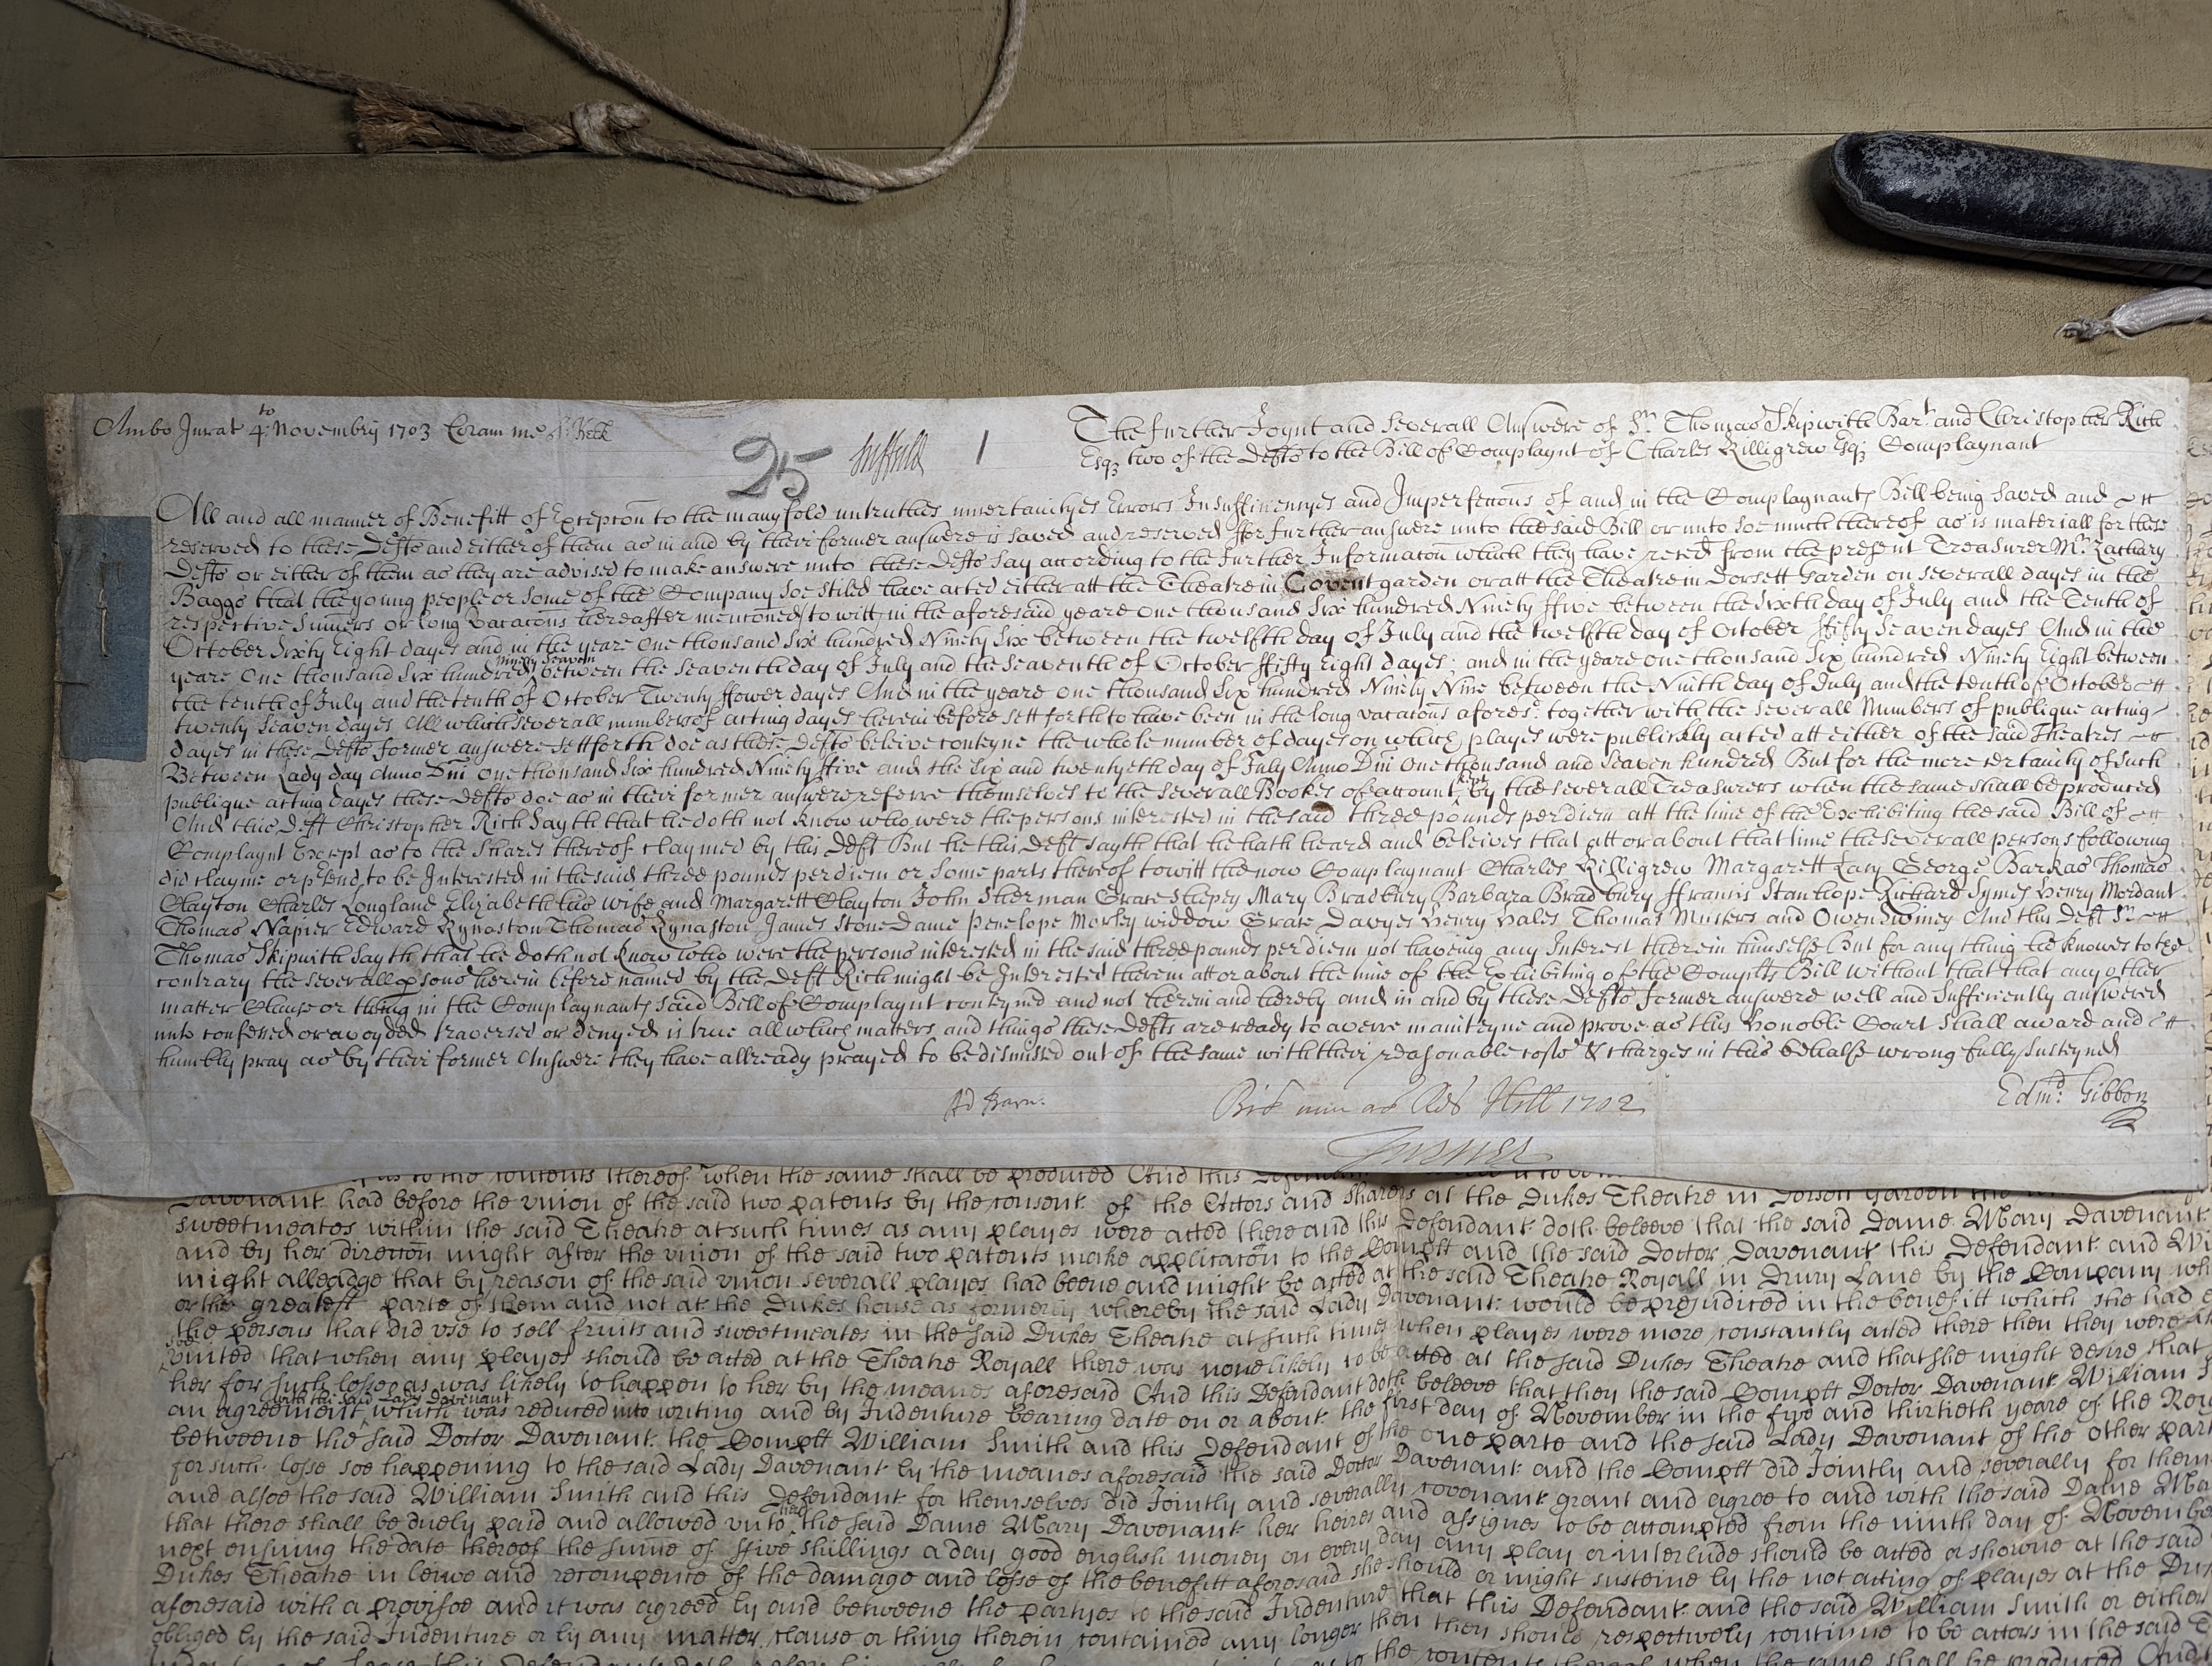 Ambo Jurat 4to Novembry 1703 Coram me
25
Suffeild 1
The further Joynt and Severall Answere of Sr. Thomas Skipwith Bart. and Christopher Rich
Esqz two of the Defts to the Bill of Complaynt of Charles Killigrew Esqz Complaynant
All and all manner of Benefitt of Excepcon to the manyfold untruthes uncertaintyes Errors Insufficiencyes and Imperfeccons of and in the Complaynants Bill being saved and
reserved to these Defts and either of them as in and by their former answere is saved and reserved ffor further answere unto the said Bill or unto soe much thereof as is materiall for these
Defts or either of them as they are advised to make answere unto these Defts say according to the further Informacon which they have reced from the present Treasurer Mr. Zachary
Baggs that the young people or some of the Company soe stiled have acted either att the Theatre in Covent garden or att the Theatre in Dorsett Garden on severall dayes in the
respective Sumers or long vacacons hereafter menconed/to witt/in the aforesaid yeare one thousand Six hundred Ninety ffive between the sixth day of July and the Tenth of
October Sixty Eight dayes and in the yeare One thousand Six hundred Ninety Six between the twelfth day of July and the twelfth day of October ffifty Seaven dayes And in the
yeare One thousand Six hundred Ninety Seaven between the seaventh day of July and the seaventh of October ffifty Eight dayes; and in the yeare one thousand Six hundred Ninety Eight between
the tenth of July and the tenth of October Twenty ffower dayes And in the yeare one thousand Six hundred Ninety Nine between the Ninth day of July and the tenth of October
twenty Seaven dayes All which severall numbers of acting dayes herein before sett forth to have been in the long vacacons aforesd. together with the severall Numbers of publique acting
dayes in these Defts former answere settforth doe as these Defts beleive conteyne the whole number of dayes on which playes were publickly acted att either of the said Theatres
Between Lady day Anno Dni One thousand Six hundred Ninety ffive and the Six and twentyeth day of July Anno Dni One thousand and Seaven hundred But for the more certainty of such
publique acting dayes these Defts doe as in their former answere referre themselves to the severall Bookes of account kept by the severall Treasurers when the same shall be produced
And this Deft Christopher Rich sayth that he doth not know who were the persons interested in the said three pounds per diem att the time of the Exhibiting the said Bill of
Complaynt Except as to the Shares thereof claymed by this Deft But he this Deft sayth that he hath heard and beleives that att or about that time the severall persons following
did clayme or ptend to be Interested in the said three pounds per diem or some parts thereof to witt the now Complaynant Charles Killigrew Margarett Lacy George Barkas Thomas
Clayton Charles Longland Elizabeth his wife and Margarett Clayton John Sherman Grace Shepey Mary Bradbury Barbara Bradbury ffrancis Stanhope Richard Symes Henry Mordant
Thomas Napier Edward Kynaston Thomas Kynaston James Stone Dame Penelope Morley widdow Grace Davyes Henry Hales Thomas Musters and Owen Swiney And this Deft Sr.
Thomas Skipwith sayth that he doth not know who were the persons interested in the said three pounds per diem not haveing any Interest therein himself But for any thing he knowes to the
contrary the severall psons herein before named by the Deft Rich might be Interested therein att or about the time of the Exhibiting of the Complts Bill without that that any other
matter Clause or thing in the Complaynants said Bill of Complaynt conteyned and not herein and hereby and in and by these Defts former answere well and sufficiently answered
unto confessed or avoyded traversed or denyed is true all which matters and things these Defts are ready to averre mainteyne and prove as this honoble Court shall award and
humbly pray as by their former Answere they have allready prayed to be dismissed out of the same with their reasonable costs & charges in this behalfe wrong fully susteyned
Hill 1702
Edmd. Gibbon
Turner
to the contents thereof when the same shall be produced And this
Davenant had before the vnion of the said two patents by the consent of the Actors and sharers at the Dukes Theatre in Dorsett Garden the
sweetmeates within the said Theatre at such times as any playes were acted there and this Defendant doth beleeve that the said Dame Mary Davenant
and by her direccon might after the vnion of the said two patents make applicacon to the Complt and the said Doctor Davenant this Defendant and
might alleadge that by reason of the said vnion severall playes had beene and might be acted at the said Theatre Royall in Drury Lane by the Company
or the greatest parte of them and not at the Dukes house as formerly whereby the said Lady Davenant would be prejudiced in the benefitt which she had
the persons that did vse to sell fruits and sweetmeates in the said Dukes Theatre at such times when playes were more constantly acted there then they were
soe vnited that when any playes should be acted at the Theatre Royall there was none likely to be acted at the said Dukes Theatre and that she might desire that
her for such losse as was likely to happen to her by the meanes aforesaid And this Defendant doth beleeve that then the said Complt Doctor Davenant William
an agreement with the said Lady Davenant which was reduced into writing and by Indenture bearing date on or about the first day of November in the five and thirtieth yeare of the
betweene the said Doctor Davenant the Complt William Smith and this Defendant of the one parte and the said Lady Davenant of the other
for such losse soe happening to the said Lady Davenant by the meanes aforesaid the said Doctor Davenant and the Complt did Jointly and severally for
and alsoe the said William Smith and this Defendant for themselves did Jointly and severally covenant grant and agree to and with the said Dame
that there shall be duely paid and allowed vnto her the said Dame Mary Davenant her heires and assignes to be accompted from the ninth day of
next ensuing the date thereof the summe of ffive shillings a day good english money on every day any play or interlude should be acted or showne at the said
Dukes Theatre in leiwe and recompence of the damage and losse of the benefitt aforesaid she should or might susteine by the not acting of playes at the
aforesaid with a provisoe and it was agreed by and betweene the partyes to the said Indenture that this Defendant and the said William Smith or either
obliged by the said Indenture or by any matter clause or thing therein contained any longer then they should respectively continue to be actors in the said
to the contents thereof when the same shall be produced And